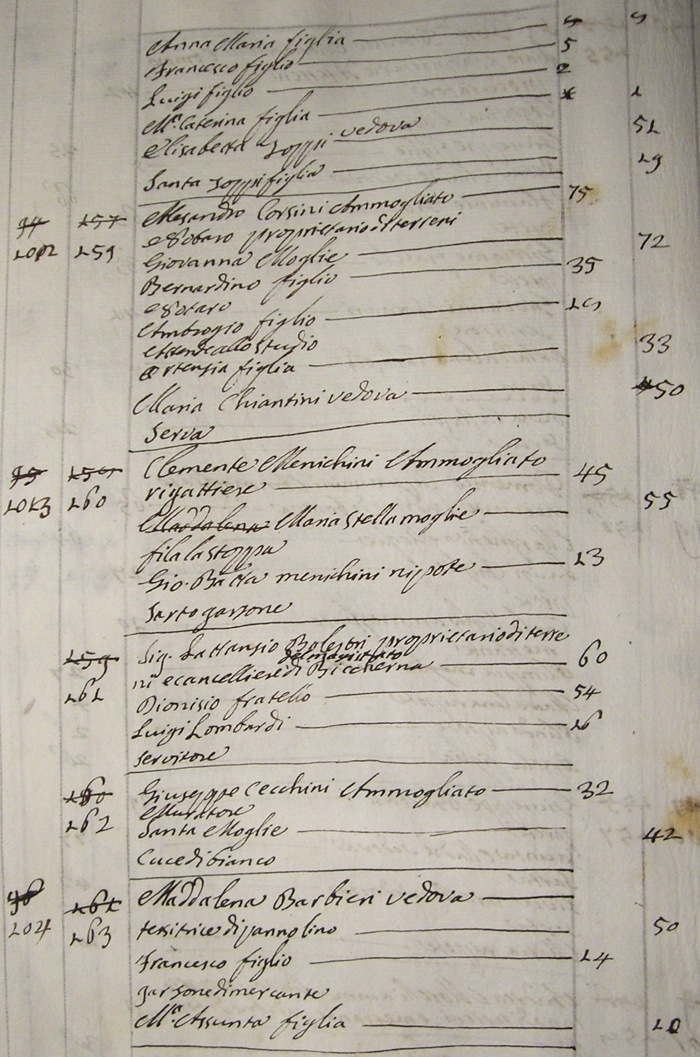 4 4
Anna Maria figlia 5
Francesco figlio 2
Luigi figlio
Mª. Caterina figlia 1
Elisabetta Zoppi vedova 51
Santa Zoppi figlia 19
94 157 Alesandro Corsini Ammogliato 75
102 159 Notaro proprietario di terreni
Giovanna Moglie 72
Bernardino figlio 35
Notaro
Ambrogio figlio 19
Attende allo studio
Ortensia figlia 33
Maria Chiantini vedova 50
Serva
95 Clemente Menichini Ammogliato
103 160 rigattiere 45
Maddalena Maria Stella moglie 55
fila la stoppa
Gio. Batta menichini nipote 13
Sarto garzone
159 Sig. Lattanzio Bolestri proprietario di terre
del magistrato
ni e cancelliere di Biccherna 60
161 Dionisio fratello 54
Luigi Lombardi 16
Servitore
160 Giuseppe Cecchini Ammogliato 32
Muratore
162 Santa Moglie 42
Cuce di bianco
96 161 Maddalena Barbieri vedova
104 163 tessitrice di panno lino 50
Francesco figlio 14
garzone di mercante
Mª. Assunta figlia 10